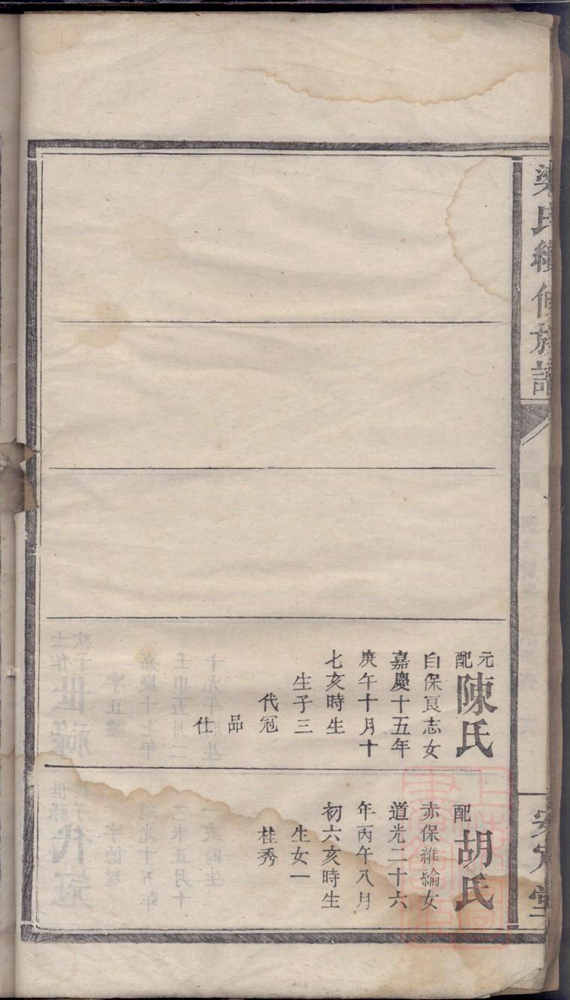 梁氏續修族譜
安定堂
元配陳氏
白保良志女
嘉慶十五年
庚午十月十
七亥時生
生子三
代冠
品
仕
配胡氏
赤保維綸女
道光二十六
年丙午八月
初六亥時生
生女一
桂秀